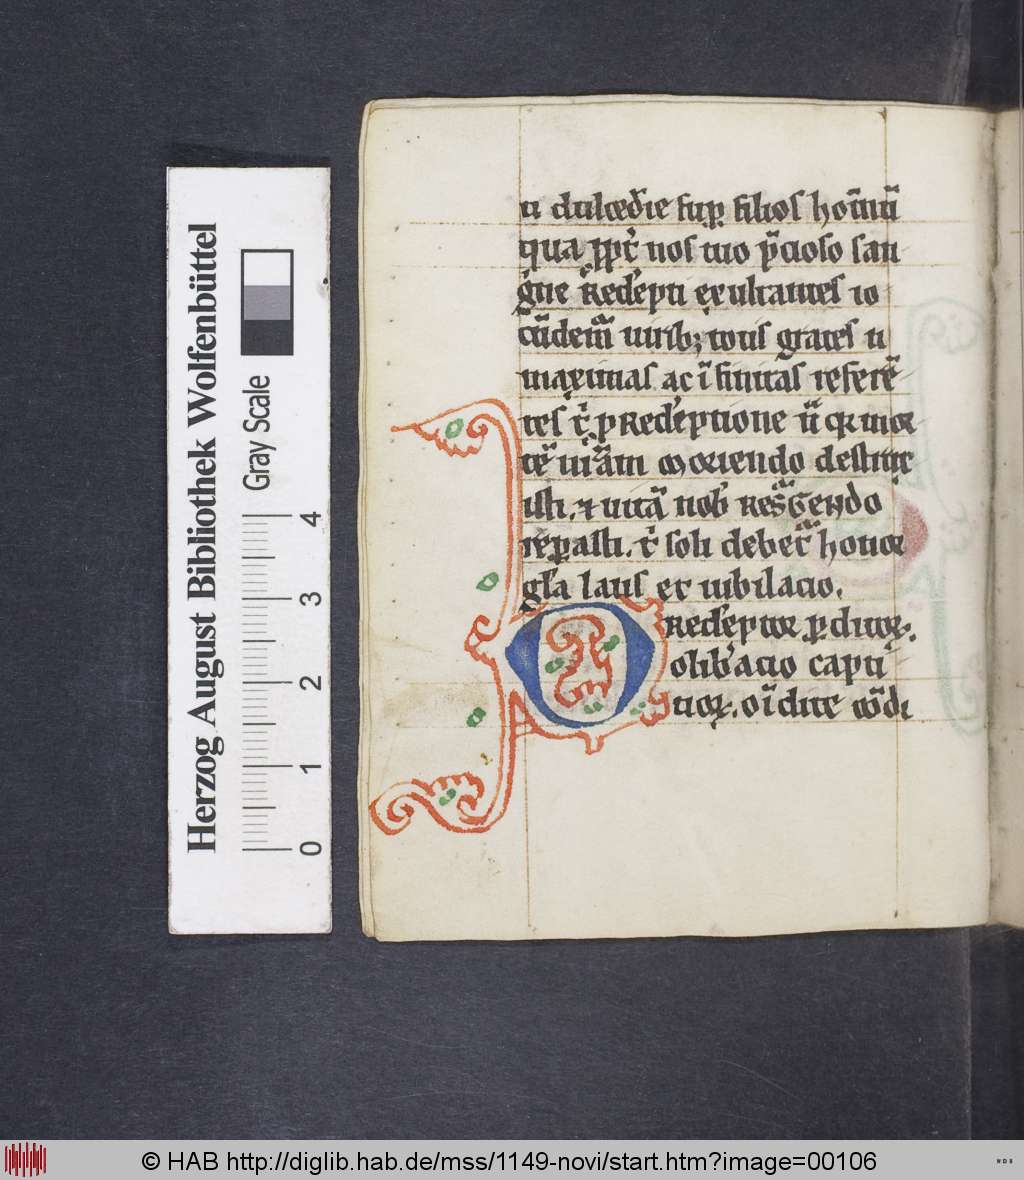 u dulcedīe sup̲ filios homīnū
qua p̲p̲t̄ nos tuo p̄cioso san
gn̄e Redēpti exultantes io
cūdem̄ uirib; totis grates ti
maximas ac īfinitas referē
tes t̄ p̲ Redēptione tū q̲ mor
tē nrām moriendo destrux
isti. ⁊ uitā nob̄ Resgendo
rep̲asti. t̄ soli debet̄ honor
gl̄a laus et iubilacio.
O Redēptor p̲ditoꝝ.
olib̄acio capti
uoꝝ. o īdite cōdi
Herzog August Bibliothek Wolfenbüttel
Gray Scale
0 1 2 3 4
© HAB http://diglib.hab.de/mss/1149-novi/start.htm?image=00106